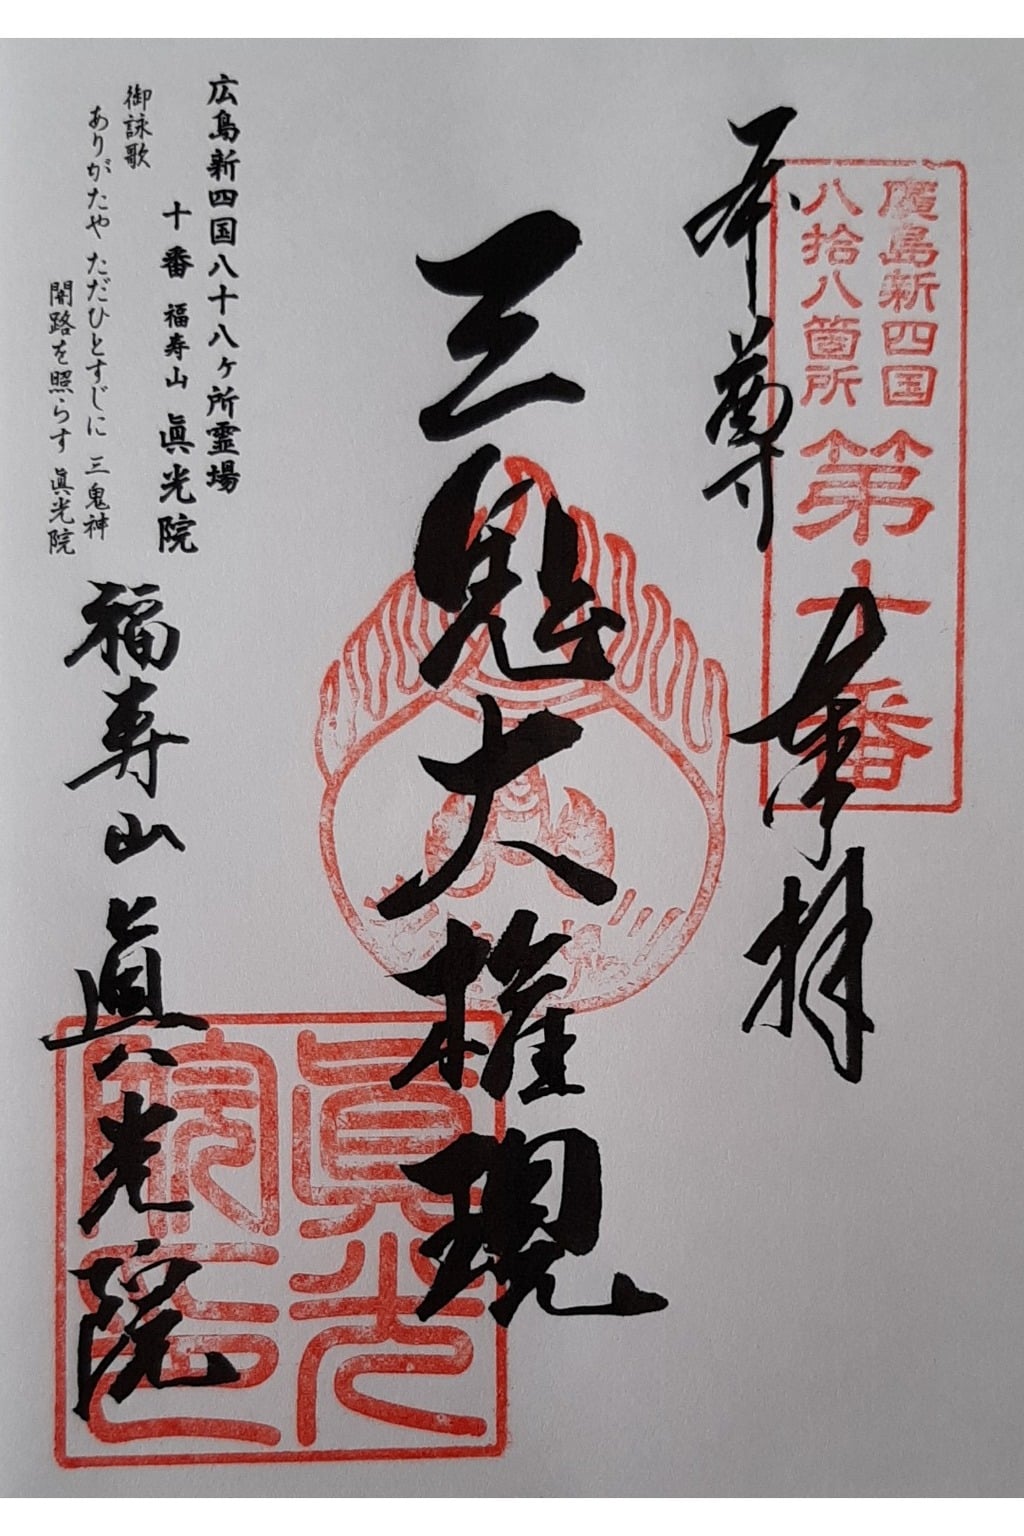 廣島新四国
八拾八箇所
第十番
奉拝
本尊
三鬼大権現
広島新四国八十八ヶ所霊場
十番 福寿山 眞光院
御詠歌
ありがたや ただひとすじに 三鬼神
開路を照らす 眞光院
福寿山 眞光院
眞光
院印